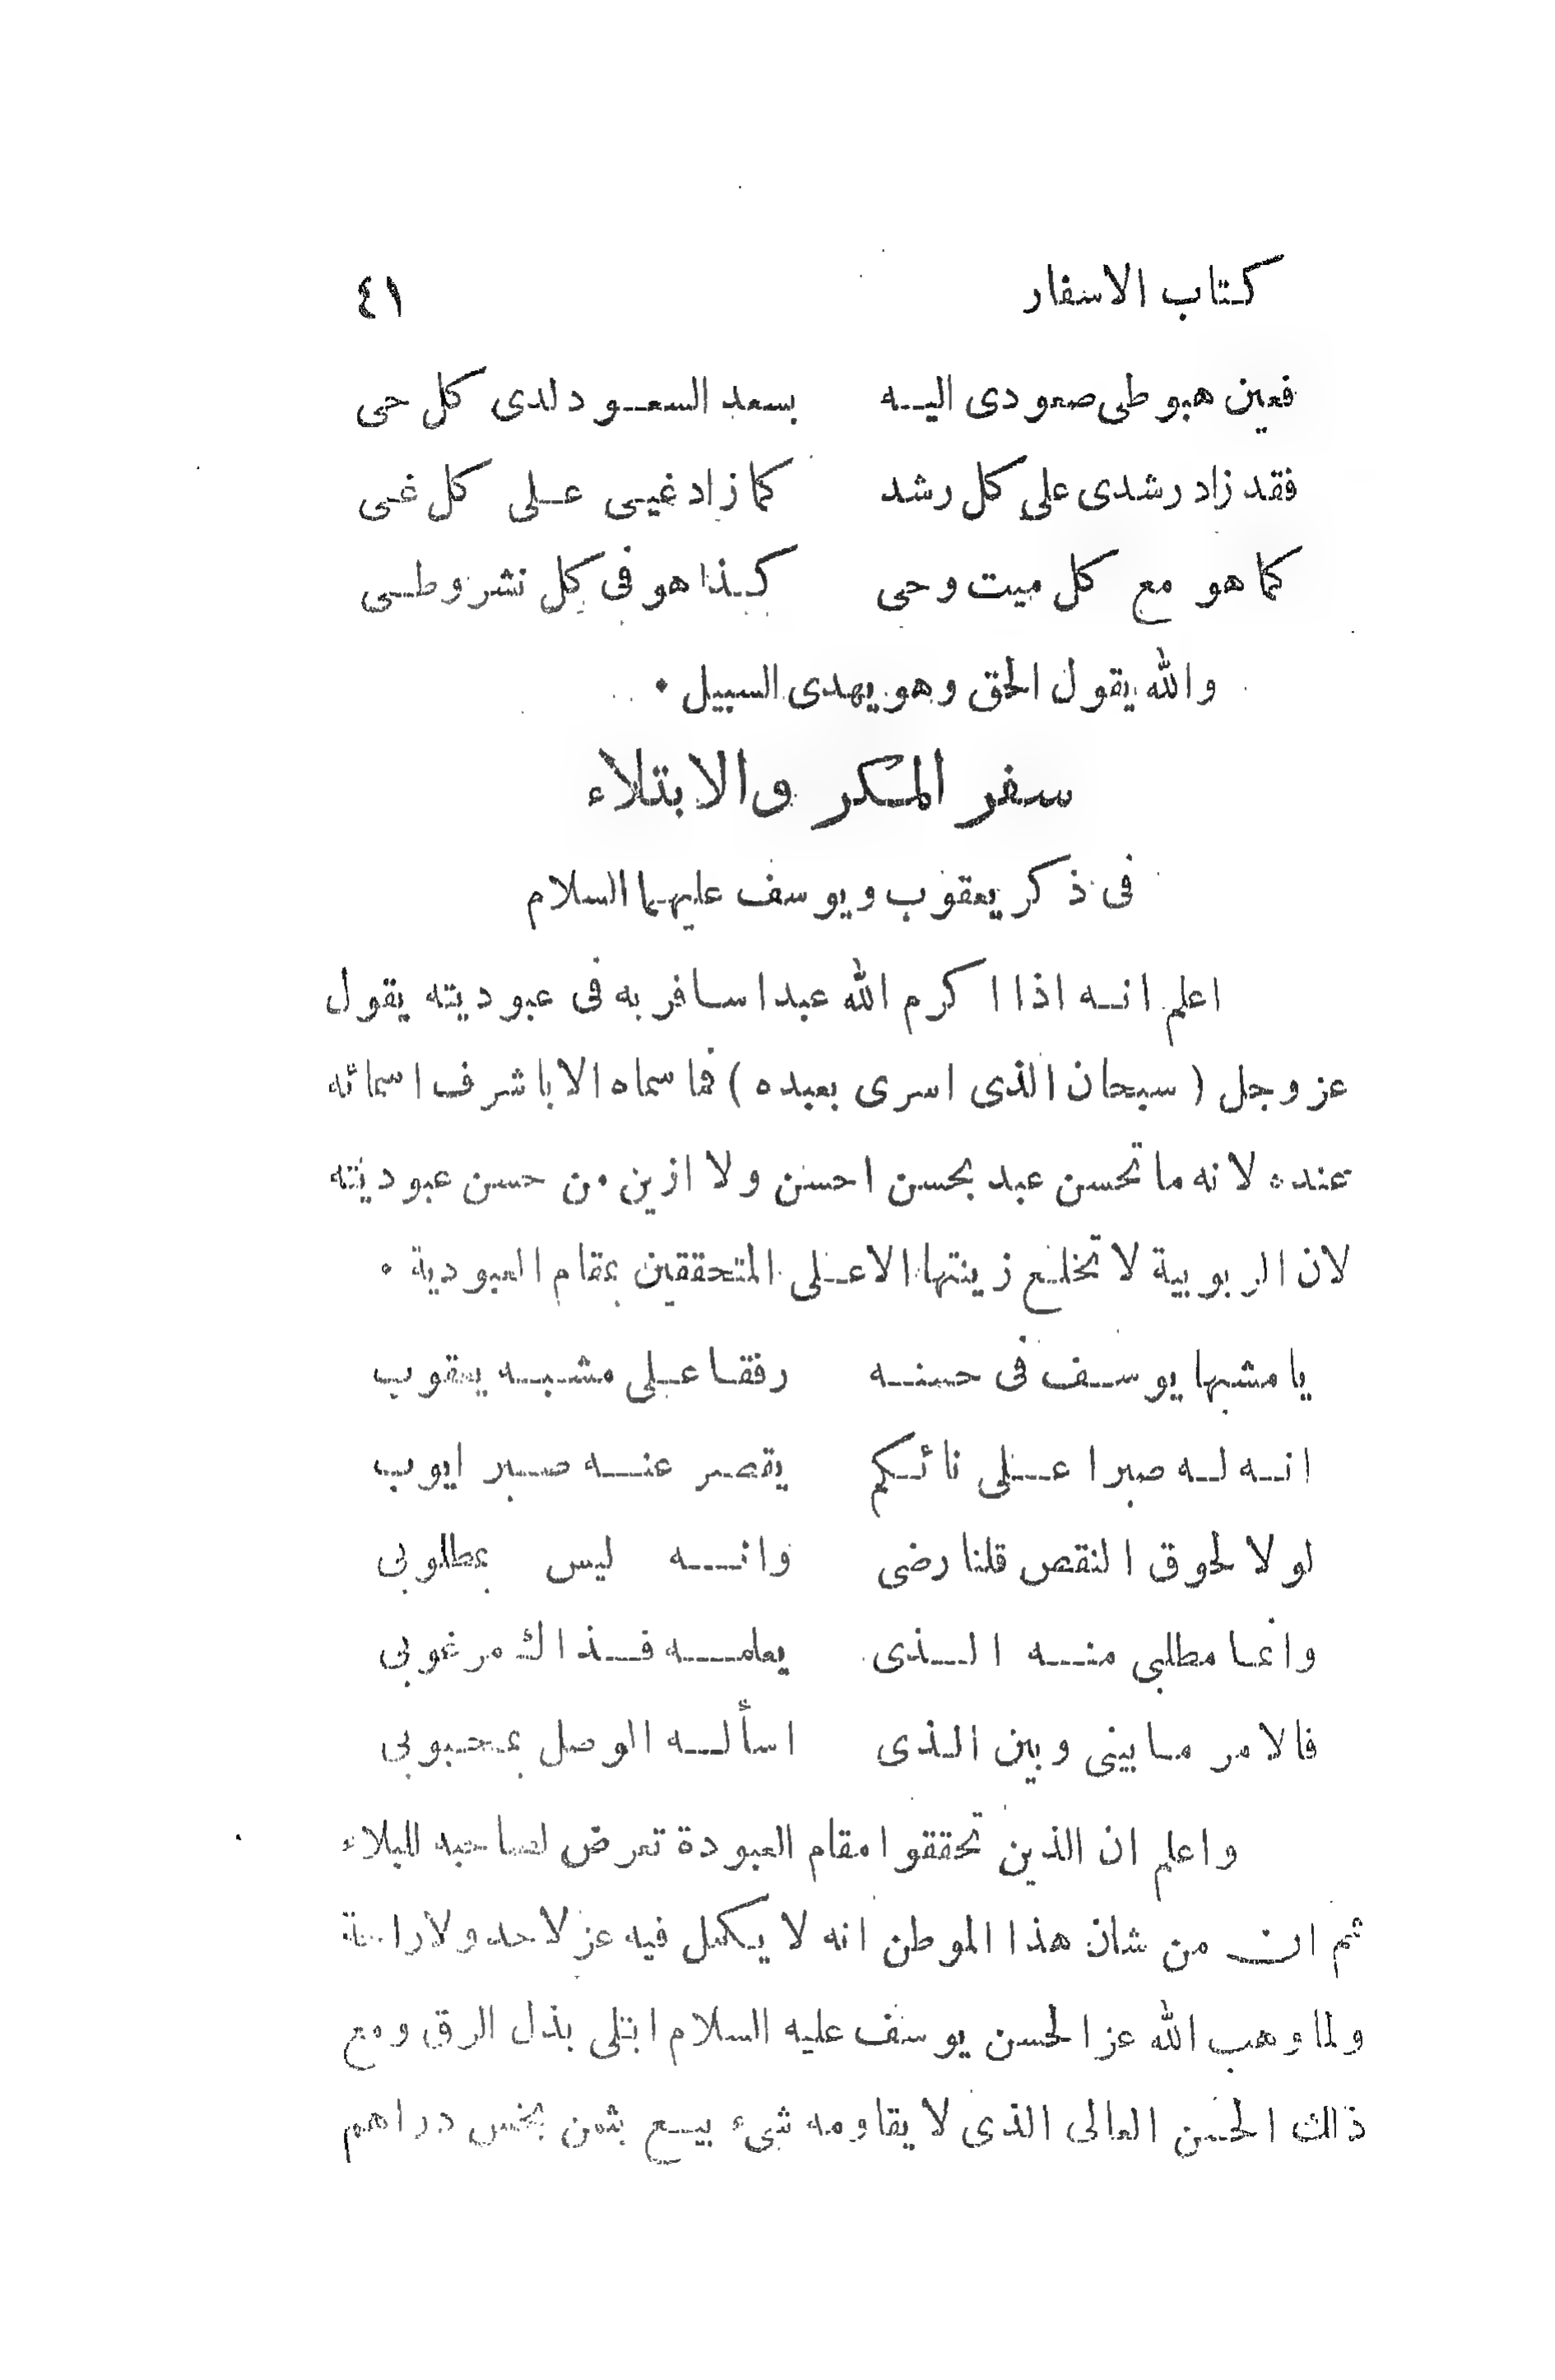 كتاب الاسفار ٤١
فعين هبوطى صعودى اليه بسعد السعود لدى كل حى
فقد زاد رشدى على كل رشد كما زاد غيى على كل غى
كما هو مع كل ميت وحى كذا هو فى كل نشر وطى
والله يقول الحق وهو يهدى السبيل ٠
سفر المكر والابتلاء
فى ذكر يعقوب ويوسف عليهما السلام
اعلم انه اذا اكرم الله عبدا سافر به فى عبوديته يقول
عز وجل ( سبحان الذى اسرى بعبده ) فما سماه الا باشرف اسمائه
عنده لانه ما تحسن عبد بحسن احسن ولا ازين من حسن عبوديته
لان الربوبية لا تخلع زينتها الا على المتحققين بمقام العبودية ٠
يا مشبها يوسف فى حسنه رفقا على مشبه يعقوب
انه له صبرا على نائكم يقصر عنه صبر ايوب
لولا لحوق النقص قلنا رضى وانه ليس بمطلوبى
وانما مطلبى منه الذى يعلمه فذاك مرغوبى
فالامر ما بينى وبين الذى اسأله الوصل بمحبوبى
واعلم ان الذين تحققوا مقام العبودة تعرض لصاحبه للبلاء
ثم ان من شان هذا الموطن انه لا يكمل فيه عز لاحد ولا راحة
ولما وهب الله عز الحسن يوسف عليه السلام ابتلى بذل الرق ومع
ذالك الحسن العالى الذى لا يقاومه شىء بيع بثمن بخس دراهم